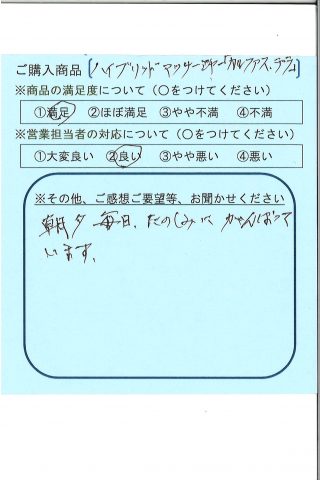 ご購入商品 [ハイブリッドマッサージャー「カルファス・デラ」
※商品の満足度について(〇をつけてください)
①満足 ②ほぼ満足 ③やや不満 ④不満
※営業担当者の対応について(〇をつけてください)
①大変良い ②良い ③やや悪い ④悪い
※その他、ご感想ご要望等、お聞かせください
朝夕 毎日、たのしみに がんばって
います。